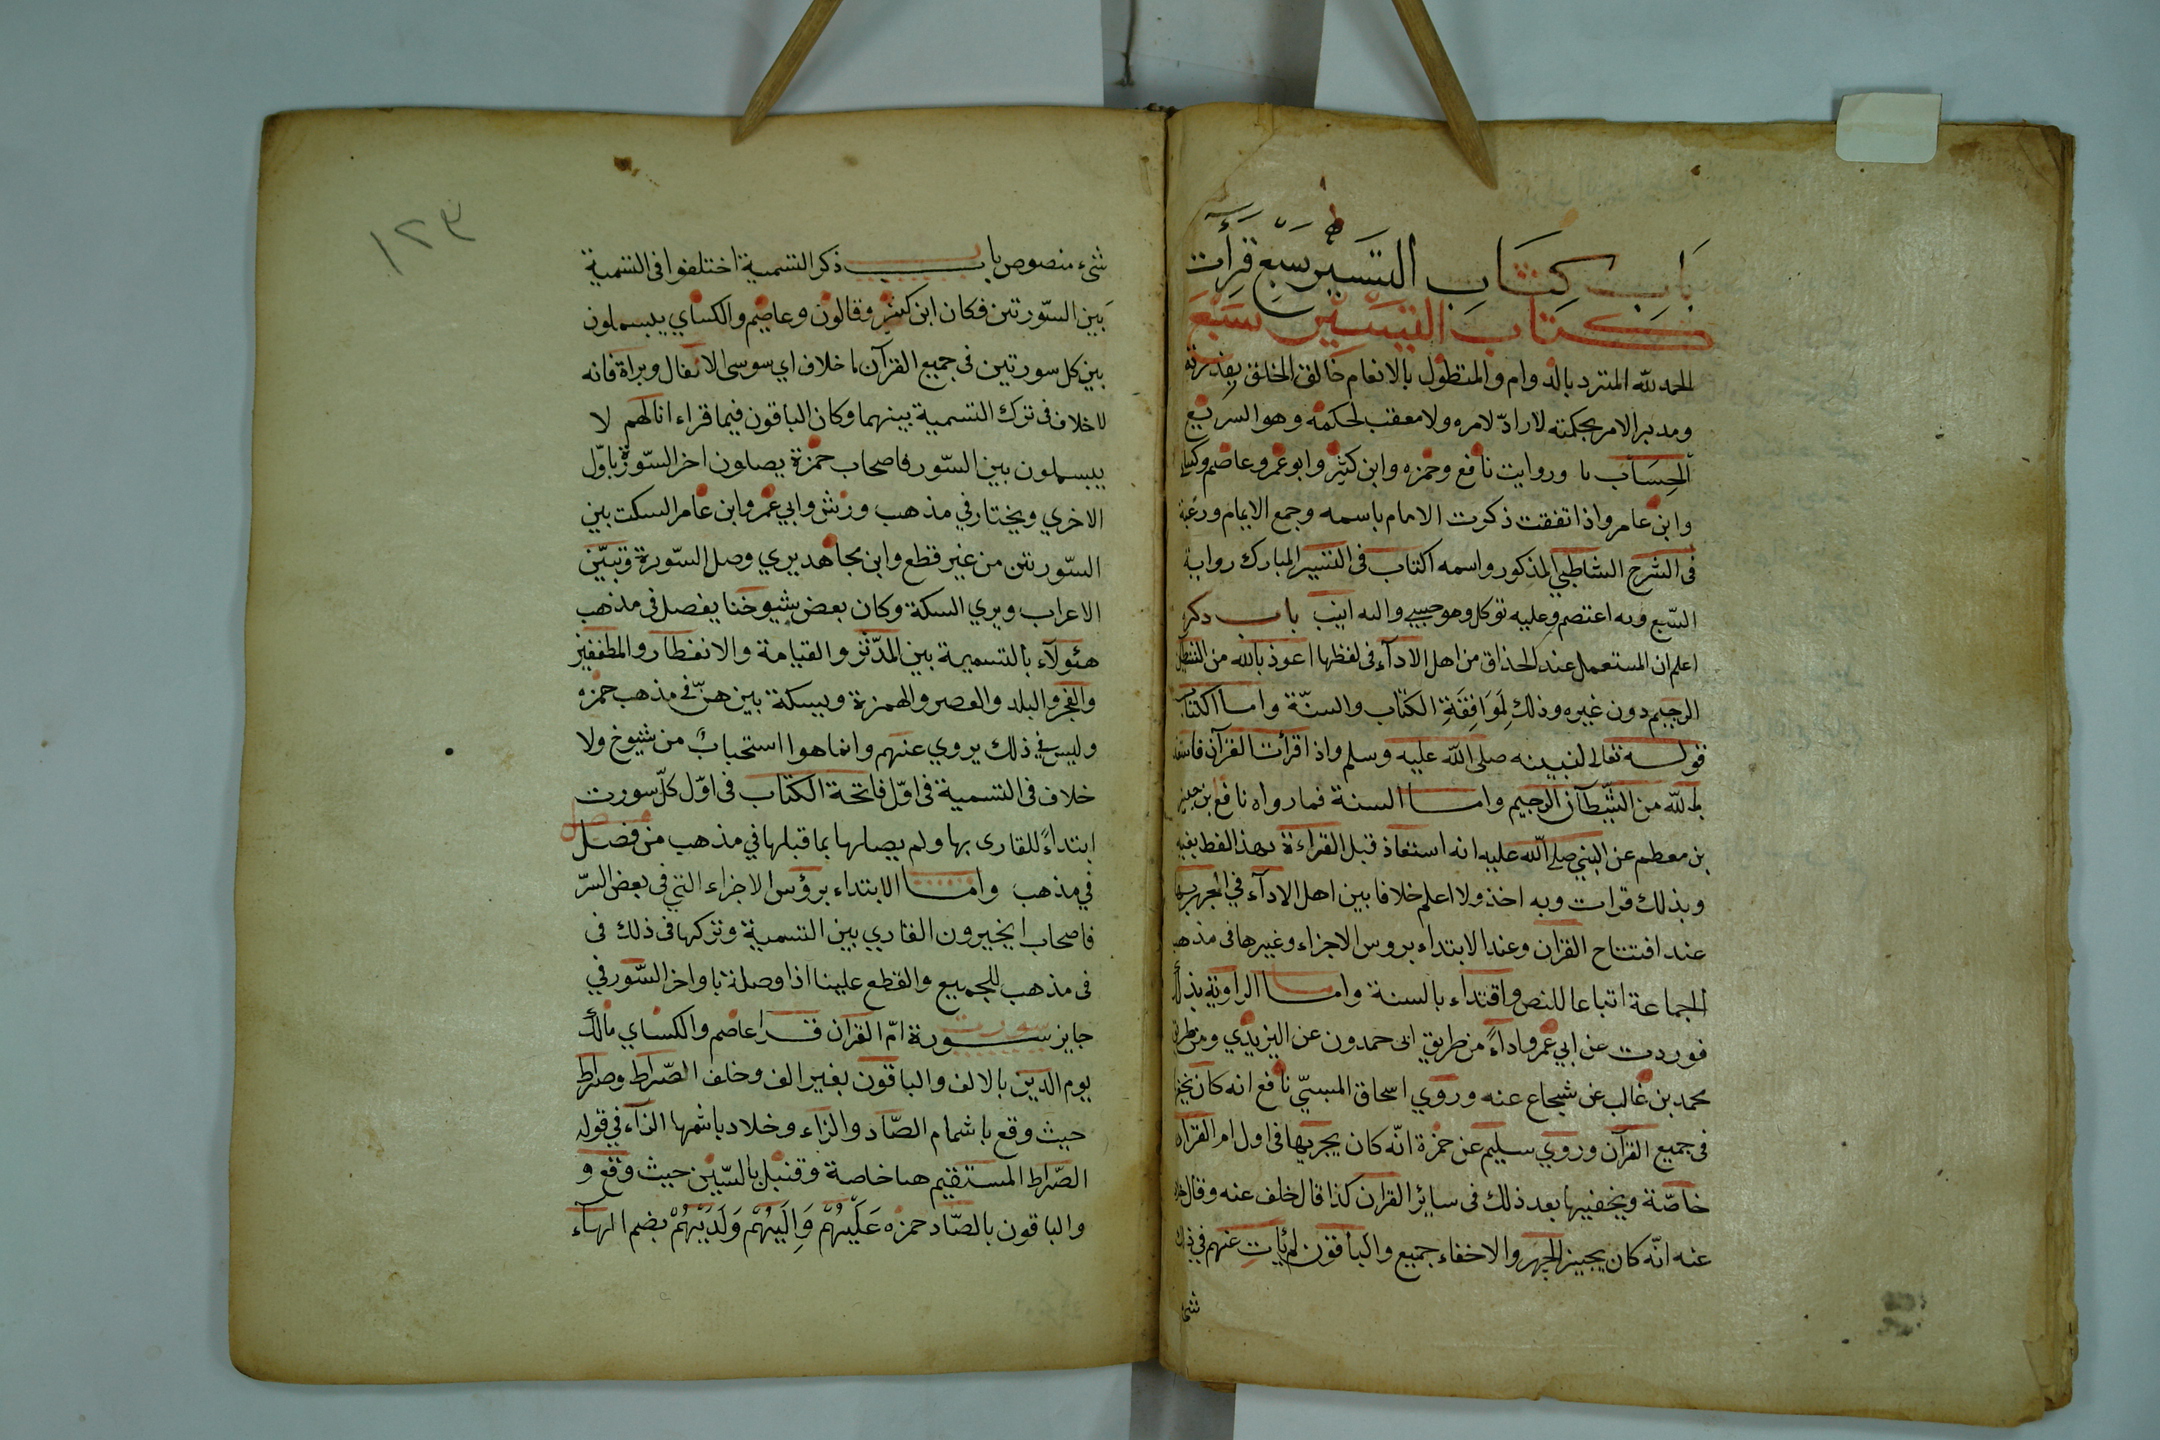 باب كِتَابِ التيسير سَبْعِ قِرَأَت
كتاب التيسير سَبْعَ
الحمد لله المتفرد بالدوام والمتطوّل بالانعام خالق الخلق بقدرته
ومدبر الامر بحكمته لا رادّ لامره ولا معقب لحكمه وهو السريع
الحِسَاب با وروايت نافع وحمزه وابن كثير وابو عمر وعاصم وكساي
وابن عامر واذا تفقت ذكرت الامام باسمه وجمع الايمام ورغبة
فى الشرح الشاطبي المذكور واسمه اكتاب فى التيسير المبارك رواية
السّبع وبه اعتصم وعليه توكل وهو حسبي واليه انيب باب ذكر
اعلم ان المستعمل عند الحذاق من اهل الادآء فى لفظها اعوذ بالله من الشيطان
الرجيم دون غيره وذلك لِمَوَافِقَةِ الكتاب والسنّة واما اكتاب
قوله تعالى لنبيه صلى الله عليه وسلم واذا قرأت القرآن فاستعذ
بالله من الشيطان الرجيم واما السنة فما رواه نافع بن جبير
بن معطم عن النبي صلى الله عليه انه استعاذ قبل القراءة بهذ الفط بعينه
وبذلك قرات وبه اخذ ولا اعلم خلافا بين اهل الادآء في الجهر بها
عند افتتاح القران وعند الابتداء بروس الاجزاء وغيرها فى مذهب
الجماعة اتباعا للنص واقتداء بالسنة واما الراوية بذلك
فوردت عن ابي عمرو اداءً من طريق ابى حمدون عن اليزيدي ومن طريق
محمد بن غالب عن شجاع عنه وروي اسحاق المسيّبي نافع انه كان يخفيها
فى جميع القرآن وروي سليم عن حمزة انّه كان يجريها فى اول ام القرآن
خاصّة ويخفيها بعد ذلك فى سايرا القران كذا قال خلف عنه وقال خلاد
عنه انّه كان يجيز الجهر والاخفاء جميع والباقون لم يأتِ عنهم في ذلك
شئ
١٢٣
شئ منصوص باب ذكر التسمية اختلفوا فى التسمية
بين السّورتين فكان ابن كثير وقالون وعاصم والكساي يبسملون
بين كل سورتين فى جميع القرآن ما خلاف اي سوسى الانفال وبراة فانه
لا خلاف فى ترك التسمية بينهما وكان الباقون فيما قراء انا لهم لا
يبسملون بين السّور فاصحاب حمزة يصلون اخر السّورة باوّل
الاخري ويختار في مذهب ورش وابي عمر وابن عامر السكت بين
السّورتين من غير قطع وابن مجاهد يري وصل السّورة وتبيّن
الاعراب ويري السكة وكان بعض شيوخنا يفصل فى مذهب
هئولآء بالتسميمة بين المدّثر والقيامة والانفطار والمطففين
والفجر والبلد والعصر والهمزة وبسكة بين هنّ فى مذهب حمزه
وليس في ذلك يروي عنهم وانما هوا استحبابٌ من شيوخ ولا
خلاف فى التسمية فى اوّل فاتحة الكتاب فى اوّل كلّ سورت
ابتداءً للقارى بها ولم يصلها بما قبلها في مذهب من فصل
في مذهب واما الابتداء برؤس الاجزاء التي فى بعض السّر
فاصحاب ايخيرون القاري بين التسمية وتركها فى ذلك فى
فى مذهب للجميع والقطع علينا اذا وصلة باواخر السّور في
جايز سورة امّ القرآن قرا عاصم والكساي مالك
يوم الدين بالالف والباقون بغير الف وخلف الصّراط وصراط
حيث وقع باشمام الصّاد والزاء وخلاد باشمها الزآء في قوله
الصّراط المستقيم هنا خاصة وقنبل بالسّين حيث وقع و
والباقون بالصّاد حمزه عَلَيْهُمْ وَاِلَيْهُمْ وَلَدَيْهُمْ بضم الهاء